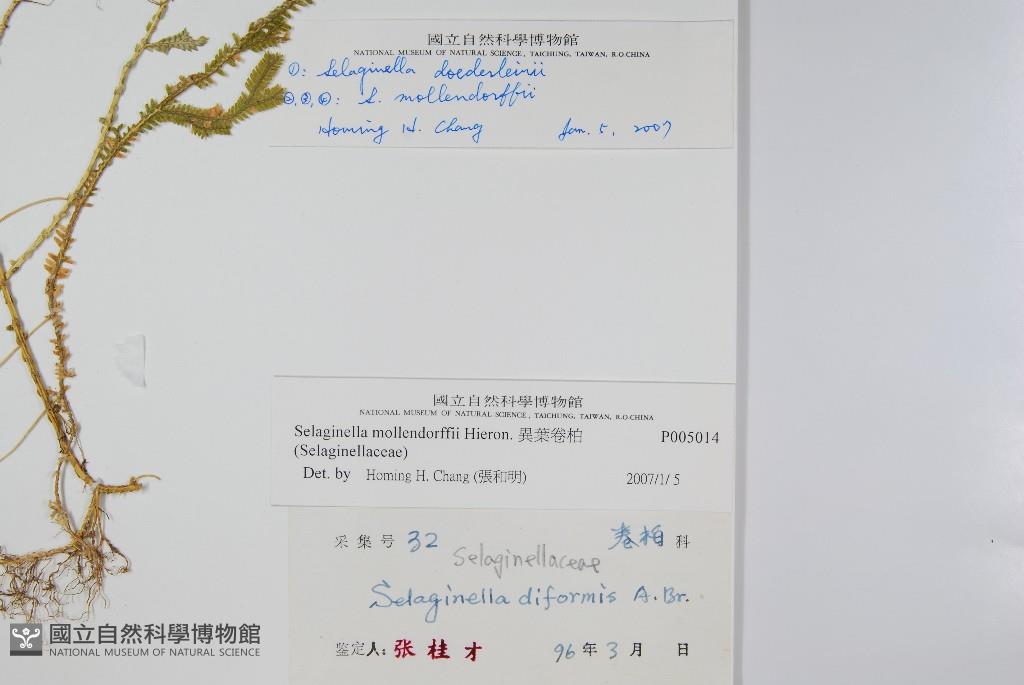 國立自然科學博物館
NATIONAL MUSEUM OF NATURAL SCIENCE, TAICHUNG, TAIWAN, R.O.CHINA
①: Selaginella doederleinii
②,③,④: S. mollendorffii
Homing H. Chang Jan. 5, 2007
國立自然科學博物館
NATIONAL MUSEUM OF NATURAL SCIENCE, TAICHUNG, TAIWAN, R.O.CHINA
Selaginella mollendorffii Hieron. 異葉卷柏 P005014
(Selaginellaceae)
Det. by Homing H. Chang (張和明) 2007/1/ 5
采集号 32 卷柏 科
Selaginellaceae
Selaginella diformis A.Br.
鉴定人: 张桂才 96 年 3 月 日
國立自然科學博物館
NATIONAL MUSEUM OF NATURAL SCIENCE